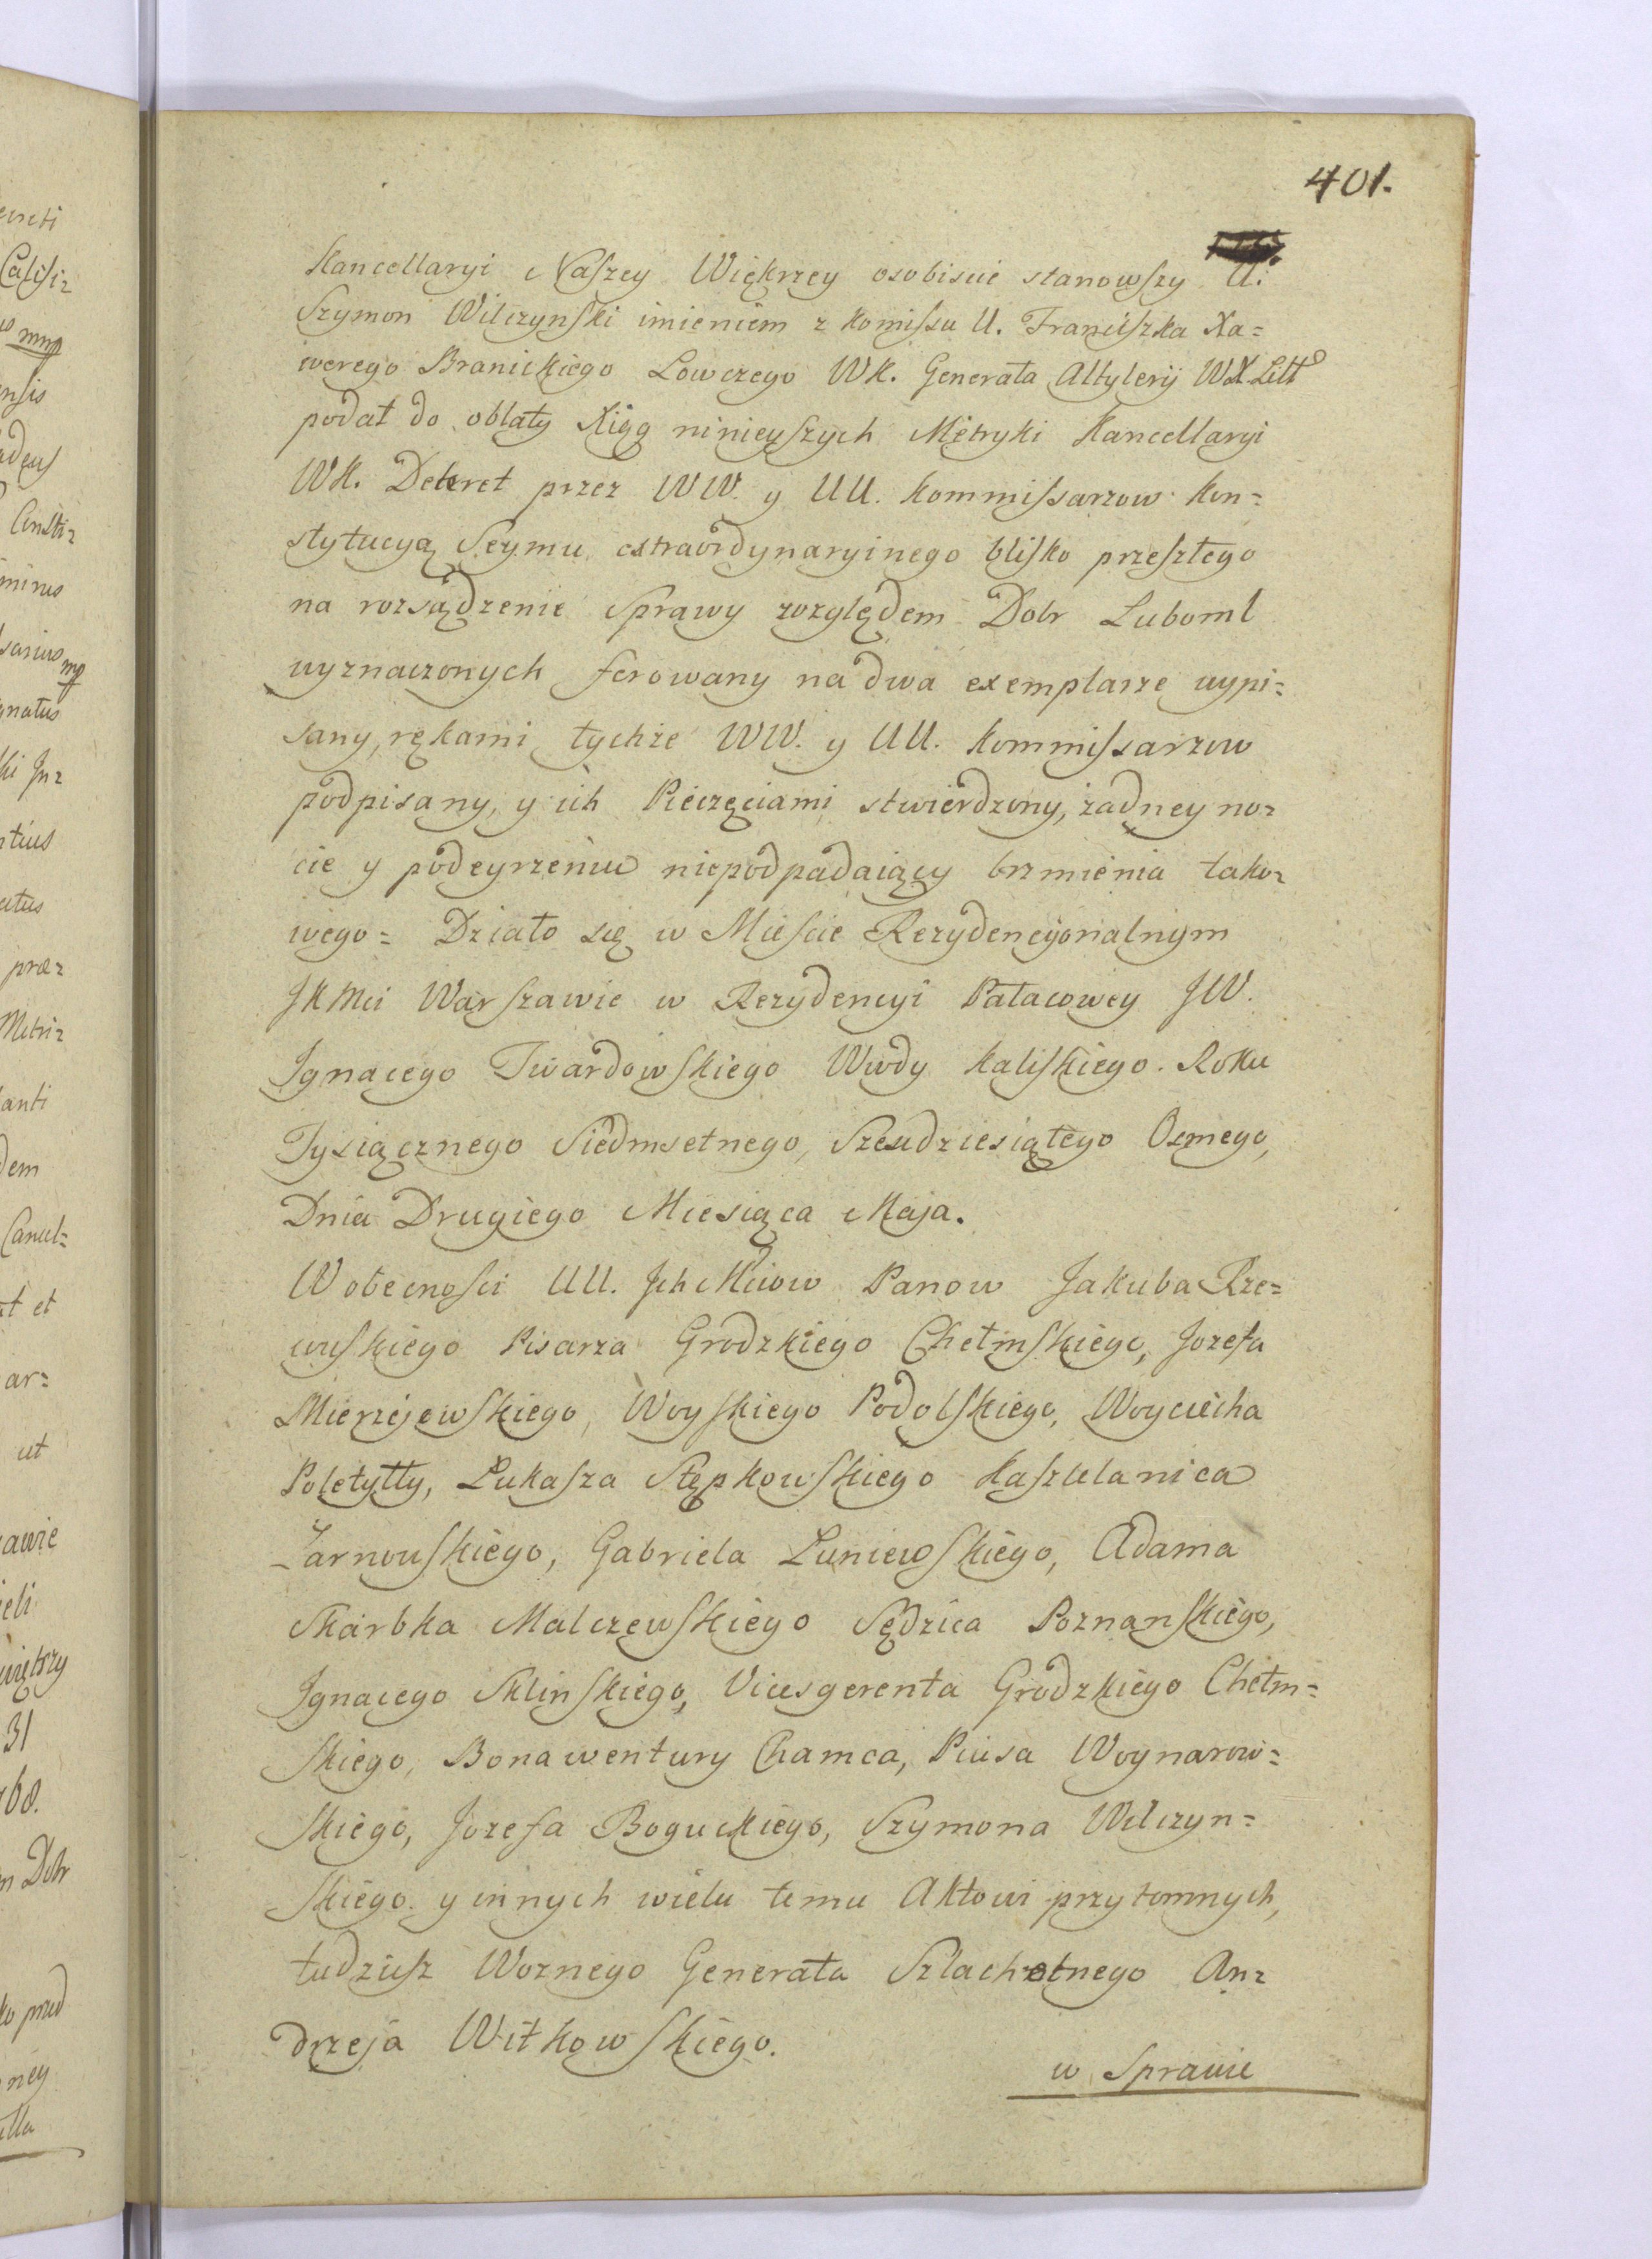 401.
Kancellaryi Naszey Większey osobiscie stanowszy U.
Szymon Wilczynski imieniem z komissu U. Franciszka Xa=
werego Branickiego Łowczego WK. Generała Altyleryi WXLitt
podał do oblaty Xiąg ninieyszych Metryki Kancellaryi
WK. Dekret przez WW. y UU. Kommissarzow Kon=
stytucyą Seymu extraordynaryinego blisko przeszłego
na rozsądzenie Sprawy względem Dobr Luboml
wyznaczonych ferowany na dwa exemplarze wypi=
sany, rękami tychże WW. y UU. Kommissarzow
podpisany, y ich Pieczęciami stwierdzony, żadney no=
cie y podeyrzeniu niepodpadaiący brzmienia tako=
wego= Działo się w Miescie Rezydencyonalnym
JKMci Warszawie w Rezydencyi Pałacowey JW.
Ignacego Twardowskiego Wwdy Kaliskiego. Roku
Tysiącznego Siedmsetnego, Szesdziesiątego Osmego,
Dnia Drugiego Miesiąca Maja.
W obecnosci UU. Jch Mciow Panow Jakuba Rze=
wuskiego Pisarza Grodzkiego Chełmskiego, Jozefa
Mierzejewskiego, Woyskiego Podolskiego, Woyciecha
Poletyłły, Łukasza Stępkowskiego Kasztelanica
Żarnowskiego, Gabriela Łuniewskiego, Adama
Skarbka Malczewskiego Sędzica Poznanskiego,
Ignacego Sklinskiego, Vicesgerenta Grodzkiego Chełm=
skiego, Bonawentury Chamca, Piusa Woynarow=
skiego, Jozefa Boguckiego, Szymona Wilczyn=
skiego. y innych wielu temu Aktowi przytomnych,
tudziesz Woznego Generała Szlachetnego An=
drzeja Witkowskiego.
w Sprawie